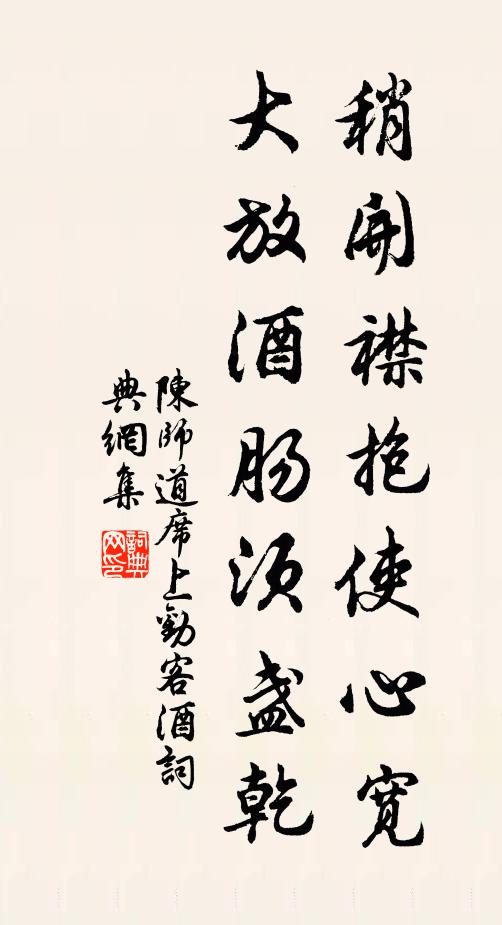 稍開襟抱使心寬
大放酒腸須盞乾
陳師道席上勸客酒詞
典網集
詞典网印